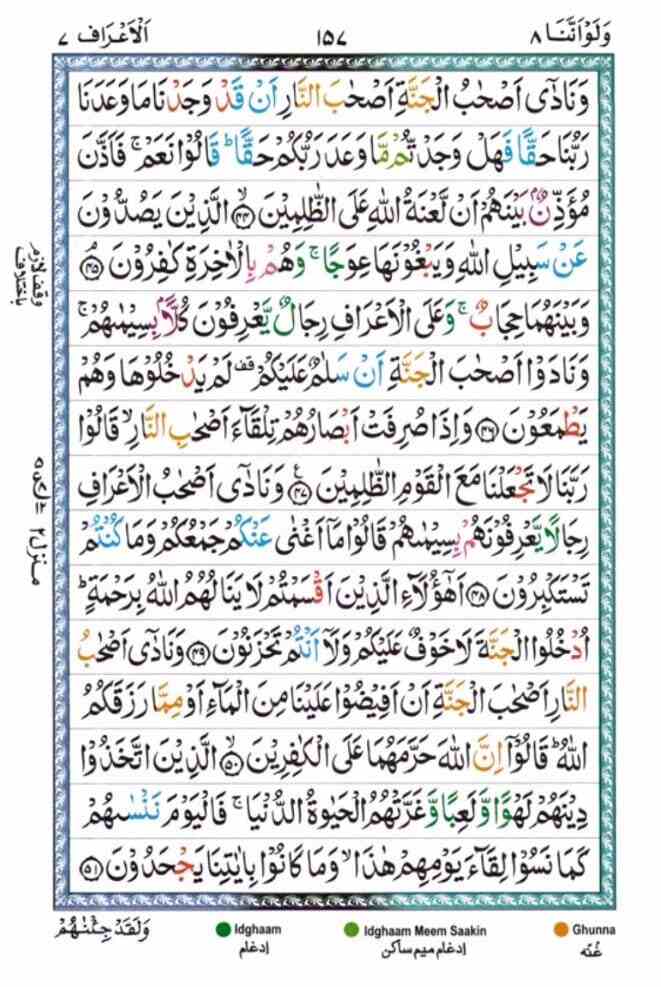 وَلَوْاَنَّنَا ٨
١٥٧
اَلْاَعْرَاف ٧
وَنَادٰۤى اَصْحٰبُ الْجَنَّةِ اَصْحٰبَ النَّارِ اَنْ قَدْ وَجَدْنَا مَا وَعَدَنَا
رَبُّنَا حَقًّا فَهَلْ وَجَدْتُّمْ مَّا وَعَدَ رَبُّكُمْ حَقًّا ؕ قَالُوْا نَعَمْ ۚ فَاَذَّنَ
مُؤَذِّنٌۢ بَيْنَهُمْ اَنْ لَّعْنَةُ اللّٰهِ عَلَى الظّٰلِمِيْنَ ۙ‏﴿۴۴﴾ الَّذِيْنَ يَصُدُّوْنَ
عَنْ سَبِيْلِ اللّٰهِ وَيَبْغُوْنَهَا عِوَجًا ۚ وَهُمْ بِالْاٰخِرَةِ كٰفِرُوْنَ ۘ‏﴿۴۵﴾
وَبَيْنَهُمَا حِجَابٌ ۚ وَعَلَى الْاَعْرَافِ رِجَالٌ يَّعْرِفُوْنَ كُلًّاۢ بِسِيْمٰىهُمْ ۚ
وَنَادَوْا اَصْحٰبَ الْجَنَّةِ اَنْ سَلٰمٌ عَلَيْكُمْ قف لَمْ يَدْخُلُوْهَا وَهُمْ
يَطْمَعُوْنَ ﴿۴۶﴾ وَاِذَا صُرِفَتْ اَبْصَارُهُمْ تِلْقَآءَ اَصْحٰبِ النَّارِ ۙ قَالُوْا
رَبَّنَا لَا تَجْعَلْنَا مَعَ الْقَوْمِ الظّٰلِمِيْنَ ﴿۴۷﴾ وَنَادٰۤى اَصْحٰبُ الْاَعْرَافِ
رِجَالًا يَّعْرِفُوْنَهُمْ بِسِيْمٰىهُمْ قَالُوْا مَاۤ اَغْنٰى عَنْكُمْ جَمْعُكُمْ وَمَا كُنْتُمْ
تَسْتَكْبِرُوْنَ ﴿۴۸﴾ اَهٰٓؤُلَآءِ الَّذِيْنَ اَقْسَمْتُمْ لَا يَنَالُهُمُ اللّٰهُ بِرَحْمَةٍ ؕ
اُدْخُلُوا الْجَنَّةَ لَا خَوْفٌ عَلَيْكُمْ وَلَاۤ اَنْتُمْ تَحْزَنُوْنَ ﴿۴۹﴾ وَنَادٰۤى اَصْحٰبُ
النَّارِ اَصْحٰبَ الْجَنَّةِ اَنْ اَفِيْضُوْا عَلَيْنَا مِنَ الْمَآءِ اَوْ مِمَّا رَزَقَكُمُ
اللّٰهُ ؕ قَالُوْۤا اِنَّ اللّٰهَ حَرَّمَهُمَا عَلَى الْكٰفِرِيْنَ ۙ‏﴿۵۰﴾ الَّذِيْنَ اتَّخَذُوْا
دِيْنَهُمْ لَهْوًا وَّلَعِبًا وَّغَرَّتْهُمُ الْحَيٰوةُ الدُّنْيَا ۚ فَالْيَوْمَ نَنْسٰىهُمْ
كَمَا نَسُوْا لِقَآءَ يَوْمِهِمْ هٰذَا ۙ وَمَا كَانُوْا بِاٰيٰتِنَا يَجْحَدُوْنَ ﴿۵۱﴾
وقف لازم
باختلاف
منزل ۲
Ghunna
غُنّه
Idghaam Meem Saakin
إدغام ميم ساكن
Idghaam
إدغام
وَلَقَدْ جِئْنٰهُمْ